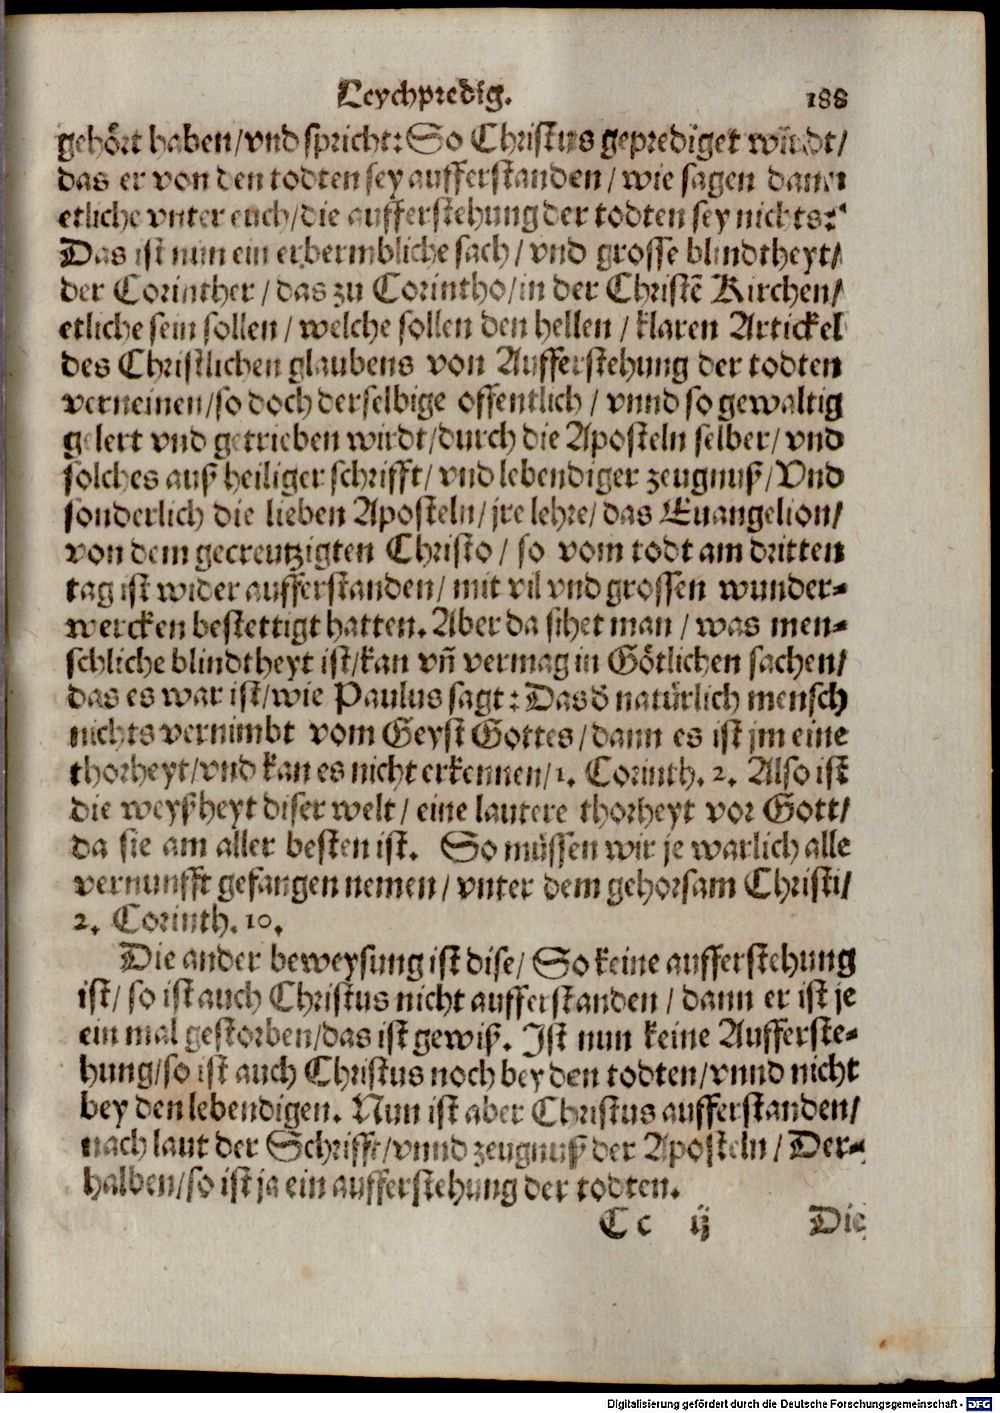 Leychpredig. 188
gehört haben/vnd spricht: So Christus geprediget würdt/
das er von den todten sey aufferstanden/wie sagen dann
etliche vnter euch/die aufferstehung der todten sey nichts?
Das ist nun ein erbermbliche sach/vnd grosse blindtheyt/
der Corinther/das zu Corintho/in der Christẽ Kirchen/
etliche sein sollen/welche sollen den hellen/klaren Artickel
des Christlichen glaubens von Aufferstehung der todten
verneinen/so doch derselbige offentlich/vnnd so gewaltig
gelert vnd getrieben wirdt/durch die Aposteln selber/vnd
solches auß heiliger schrifft/vnd lebendiger zeugnuß/Vnd
sonderlich die lieben Aposteln/jre lehre/das Euangelion/
von dem gecreutzigten Christo/so vom todt am dritten
tag ist wider aufferstanden/mit vil vnd grossen wunder-
wercken bestettigt hatten. Aber da sihet man/was men-
schliche blindtheyt ist/kan vñ vermag in Götlichen sachen/
das es war ist/wie Paulus sagt: Das d̃ natürlich mensch
nichts vernimbt vom Geyst Gottes/dann es ist jm eine
thorheyt/vnd kan es nicht erkennen/1. Corinth. 2. Also ist
die weyßheyt diser welt/eine lautere thorheyt vor Gott/
da sie am aller besten ist. So müssen wir je warlich alle
vernunfft gefangen nemen/vnter dem gehorsam Christi/
2. Corinth. 10.
Die ander beweysung ist dise/So keine aufferstehung
ist/so ist auch Christus nicht aufferstanden/dann er ist je
ein mal gestorben/das ist gewiß. Ist nun keine Aufferste-
hung/so ist auch Christus noch bey den todten/vnnd nicht
bey den lebendigen. Nun ist aber Christus aufferstanden/
nach laut der Schrifft/vnnd zeugnuß der Aposteln/Der-
halben/so ist ja ein aufferstehung der todten.
Cc ij Die
Digitalisierung gefördert durch die Deutsche Forschungsgemeinschaft - DFG